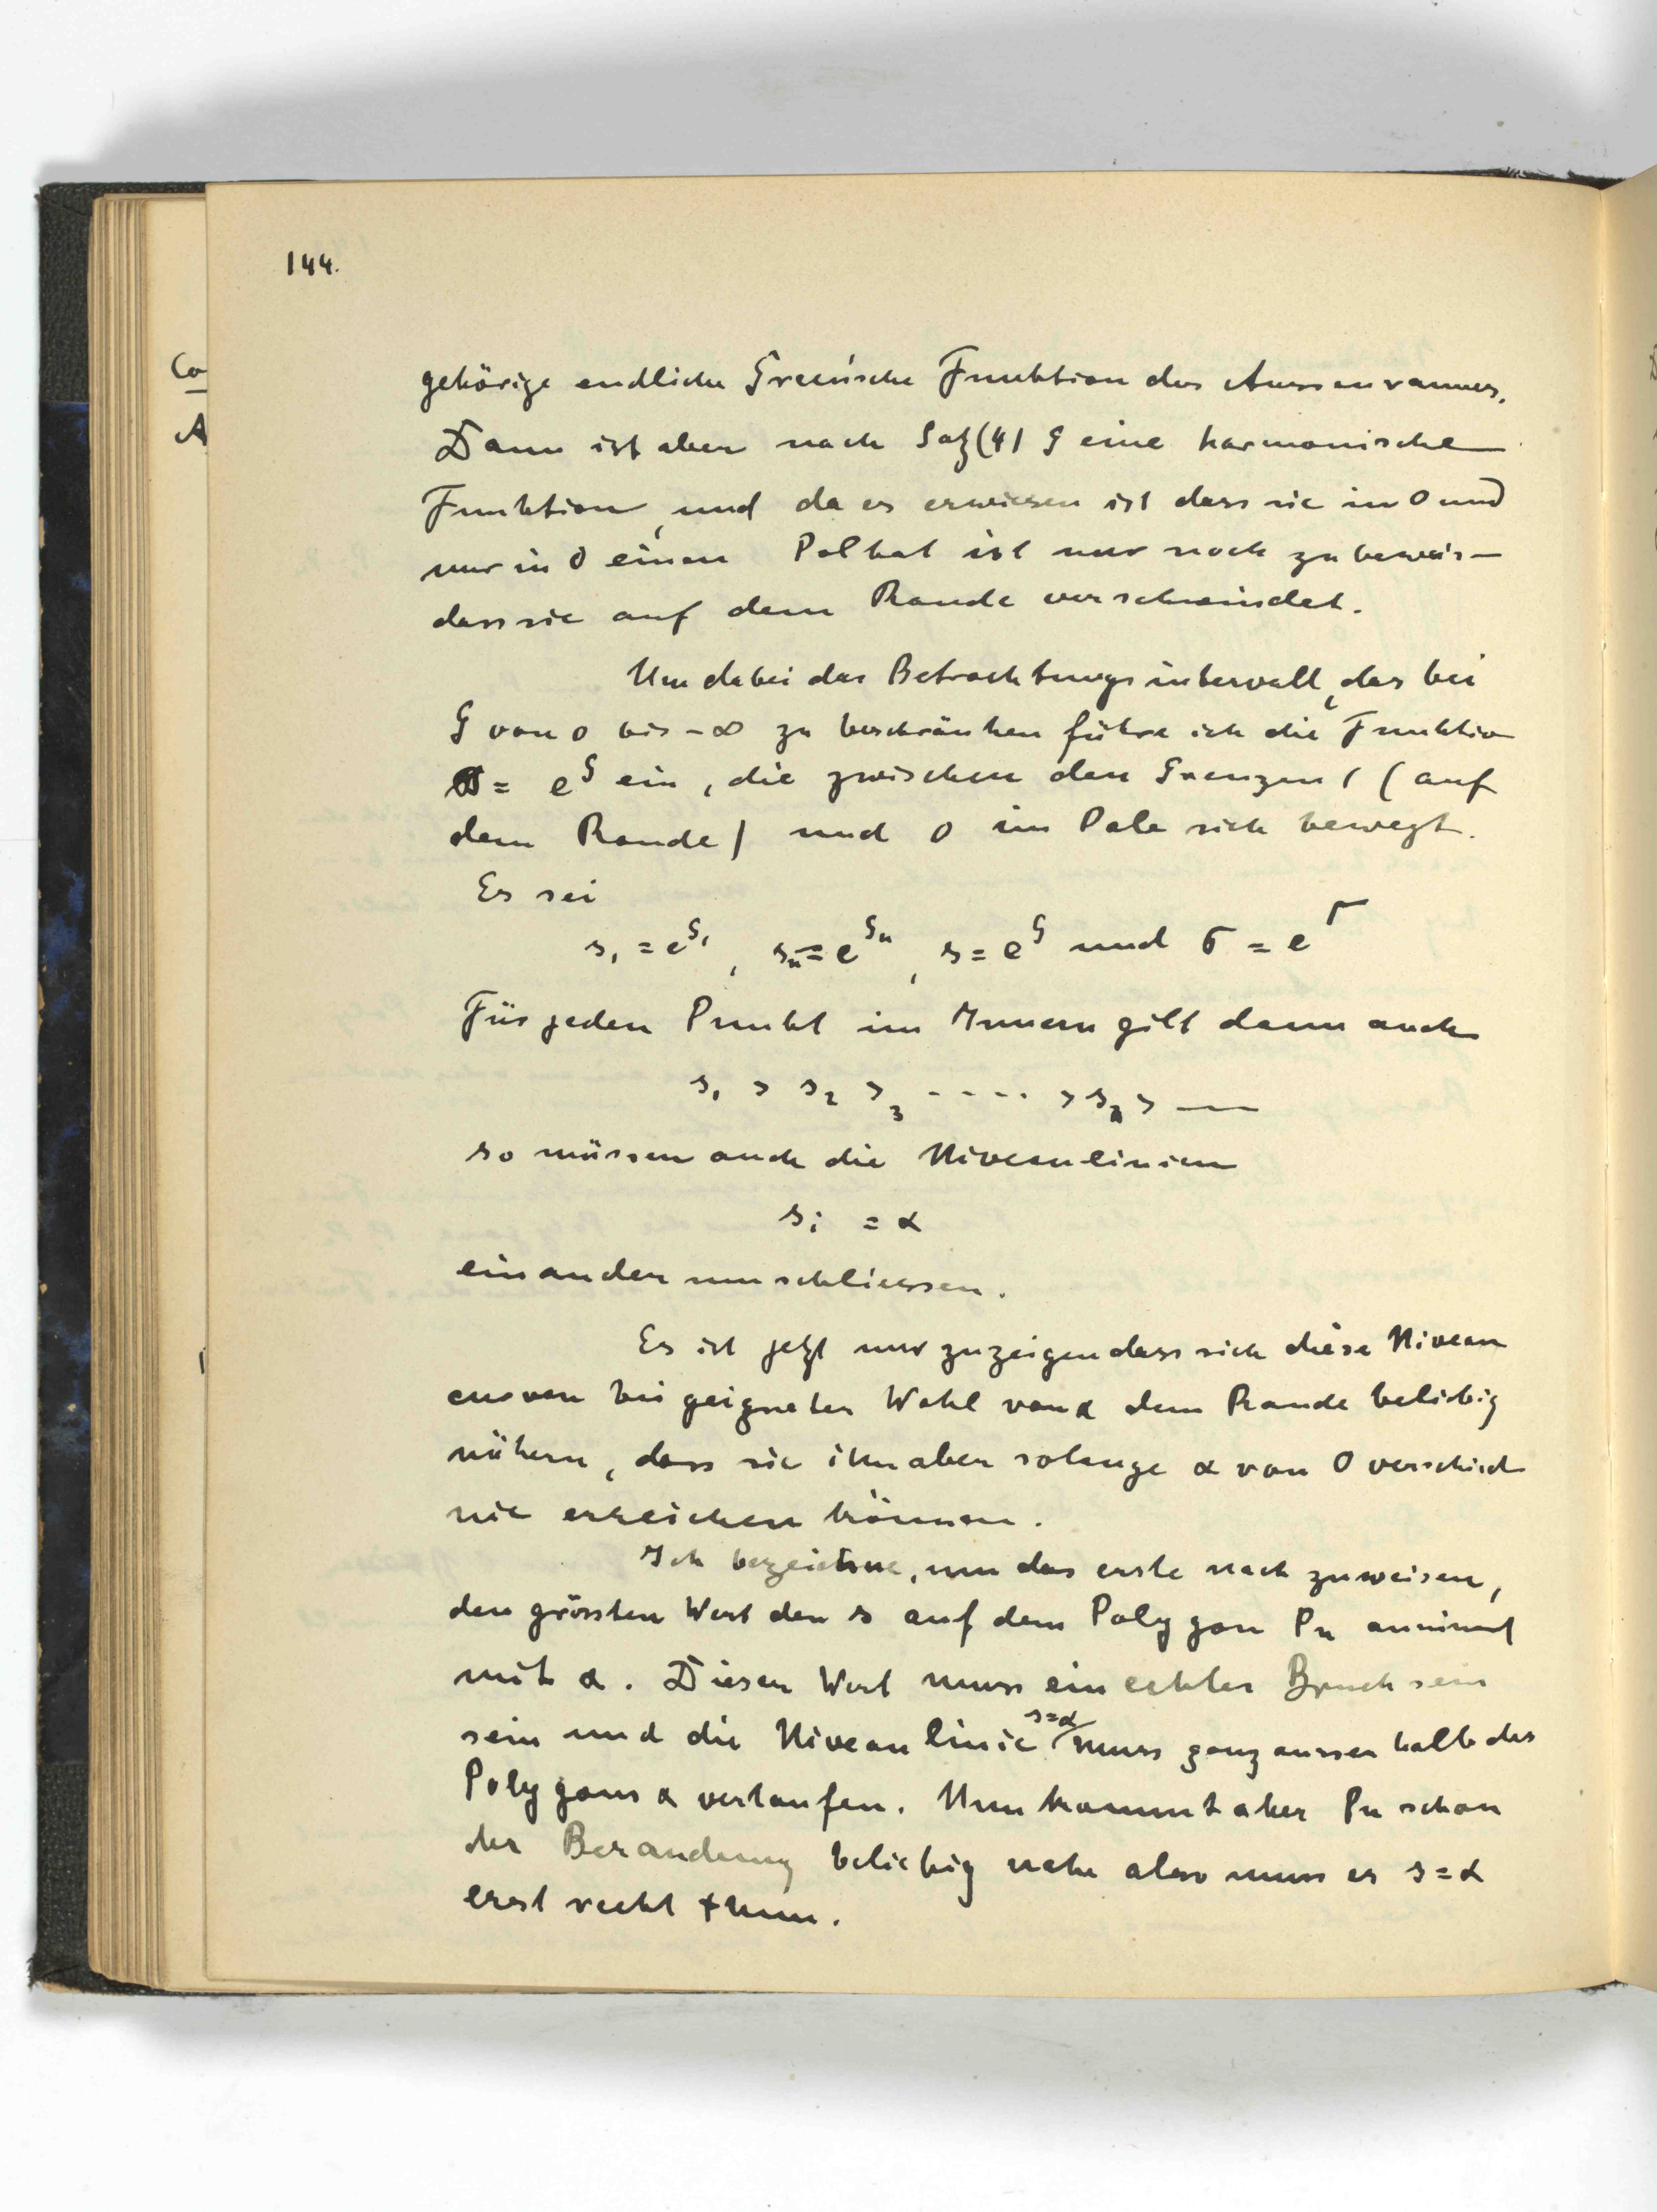 144.
Co
A
gehörige endliche Green'sche Funktion des Aussenraumes.
Dann ist aber nach Satz (4) G eine harmonische
Funktion, und da es erwiesen ist dass sie in O und
nur in O einen Pol hat ist nur noch zu beweis-
dass sie auf dem Rande verschwindet.
Um dabei das Betrachtungsintervall, das bei
G von 0 bis -∞ zu beschränken führe ich die Funktion
= e^G ein, die zwischen den Grenzen 1 (auf
dem Rande) und 0 im Pole sich bewegt.
Es sei
s₁ = e^G₁, sₙ = e^Gₙ, s = e^G und σ = e^Γ
Für jeden Punkt im Innern gilt dann auch
s₁ > s₂ >₃ - - - - > sₙ > —
so müssen auch die Niveaulinien
sᵢ = α
einander umschliessen.
Es ist jetzt nur zuzeigen dass sich diese Niveau
curven bei geigneter Wahl von α dem Rande beliebig
nähern, dass sie ihn aber solange α von 0 verschied
nie erreichen können.
Ich bezeichne, um das erste nachzuweisen,
den grössten Wert den s auf dem Polygon Pn annimmt
mit α. Dieser Wert muss ein echter Bruch sein
sein und die Niveaulinie s=α muss ganz ausserhalb des
Polygons α verlaufen. Nun kommt aber Pn schon
der Berandung beliebig nahe also muss es s=α
erst recht thun.